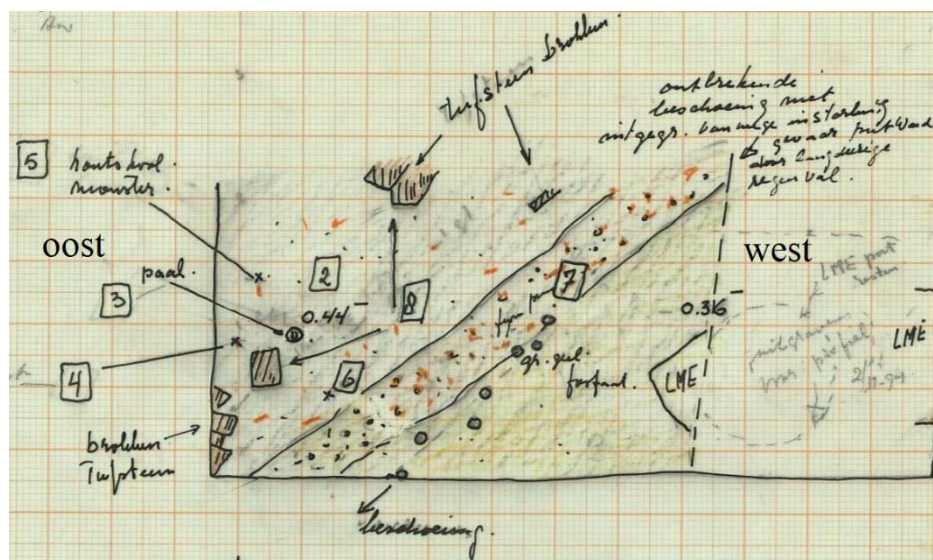 tufsteen brokken
ontbrekende
beschoeiing niet
uitgegr. vanwege instorting
gevaar putwand
door langdurige
regenval.
5
houtskool
monster.
oost
west
paal.
3
2
0.44-
8
7
fijn
LME put
0.36-
4
6
gr. geel.
LME
LME
uitgraven
voor profiel
brokken
Tufsteen
beschoeiing.